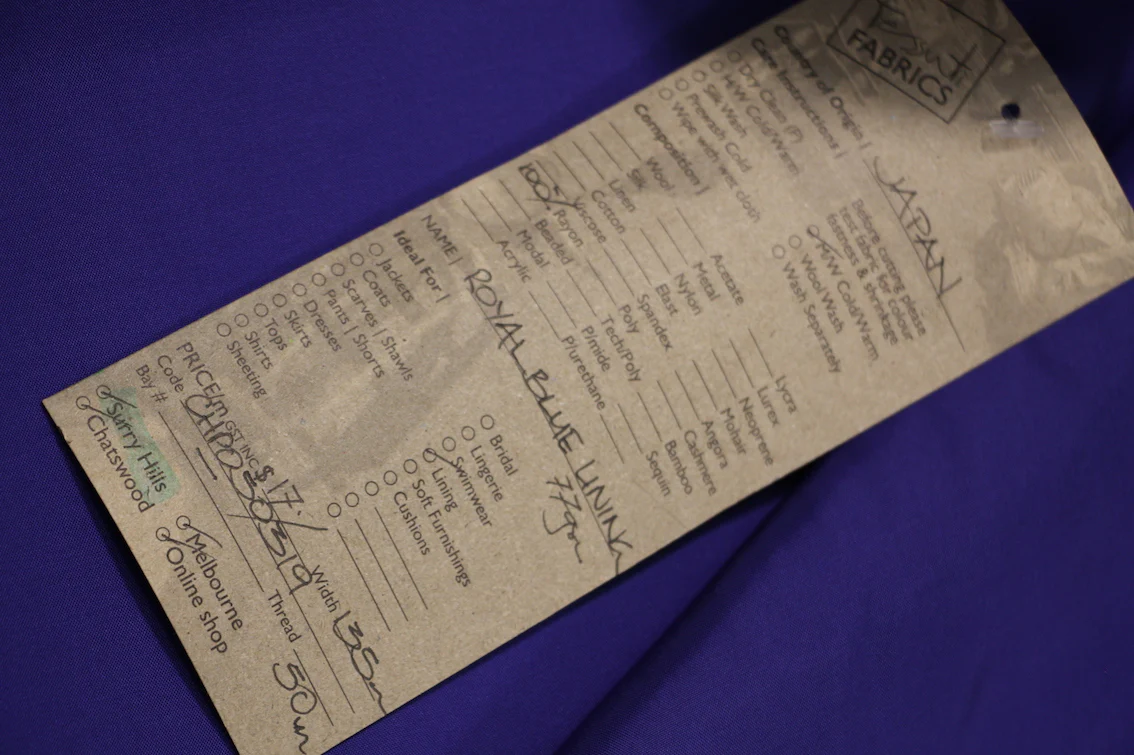 FABRICS
Country of Origin | JAPAN
Care Instructions |
Dry Clean (P)
H/W Cold/Warm
Silk Wash
Prewash Cold
Wipe with wet cloth
Before cutting please
test fabric for colour
fastness & shrinkage
M/W Cold/Warm
Wool Wash
Wash Separately
Composition |
Wool
Silk
Linen
Cotton
Viscose
100% Rayon
Beaded
Modal
Acrylic
Acetate
Metal
Nylon
Elast
Spandex
Poly
Tech/Poly
P/mide
P/urethane
Lycra
Lurex
Neoprene
Mohair
Angora
Cashmere
Bamboo
Sequin
NAME | ROYAL BLUE LINING
77gm
Ideal For |
Jackets
Coats
Scarves | Shawls
Pants | Shorts
Dresses
Skirts
Tops
Shirts
Sheeting
Bridal
Lingerie
Swimwear
Lining
Soft Furnishings
Cushions
PRICE/m GST INC $17.
Width 135
Code
Bay #
Thread 50m
Surry Hills
Chatswood
Melbourne
Online shop